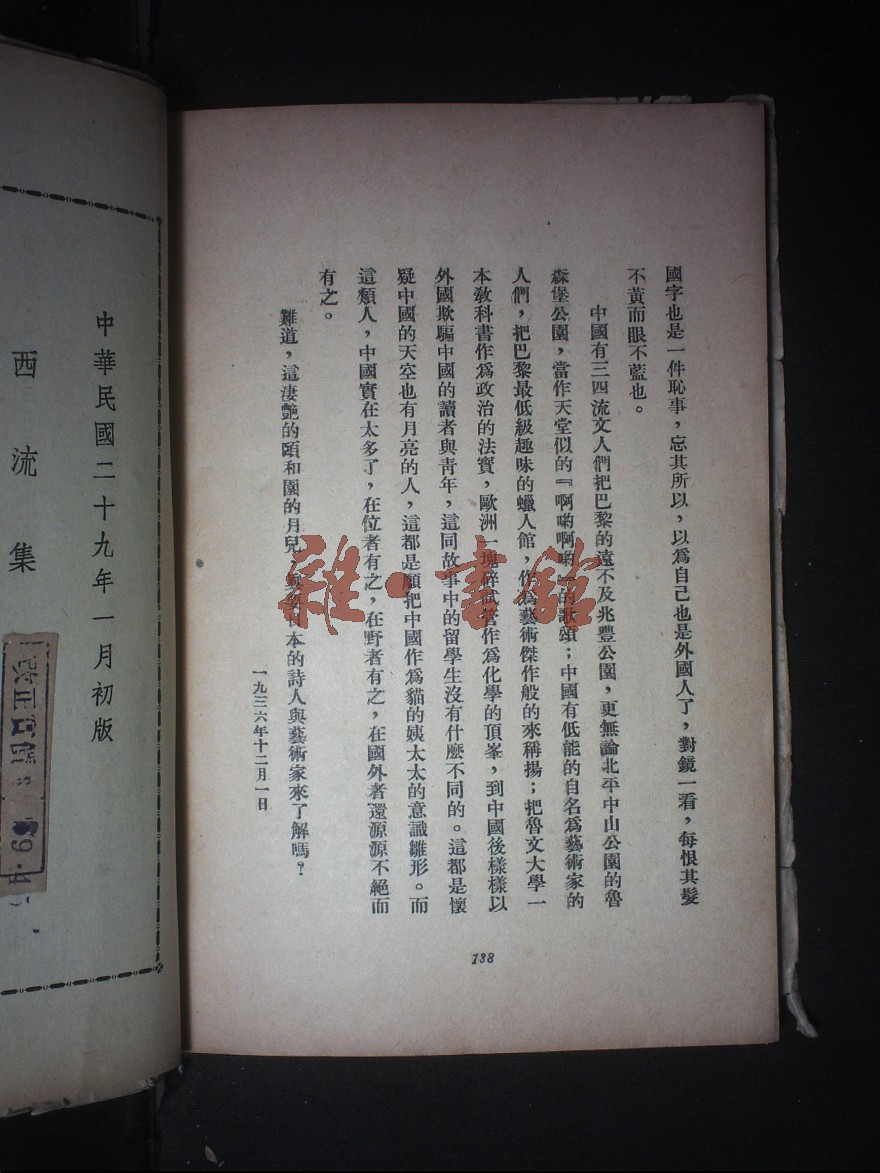 國字也是一件恥事，忘其所以，以爲自己也是外國人了，對鏡一看，每恨其髮
不黃而眼不藍也。
中國有三四流文人們把巴黎的遠不及兆豐公園，更無論北平中山公園的魯
森堡公園，當作天堂似的『啊喲啊喲』的歌頌；中國有低能的自名爲藝術家的
人們，把巴黎最低級趣味的蠟人館，作爲藝術傑作般的來稱揚；把魯文大學一
本教科書作爲政治的法寶，歐洲一塊碎試管作爲化學的頂峯，到中國後樣樣以
外國欺騙中國的讀者與青年，這同故事中的留學生沒有什麼不同的。這都是懷
疑中國的天空也有月亮的人，這都是願把中國作爲貓的姨太太的意識雛形。而
這類人，中國實在太多了，在位者有之，在野者有之，在國外者還源源不絕而
有之。
難道，這淒艷的頤和園的月兒，本的詩人與藝術家來了解嗎？
一九三六年十二月一日
138
中華民國二十九年一月初版
西流集
雜·書館